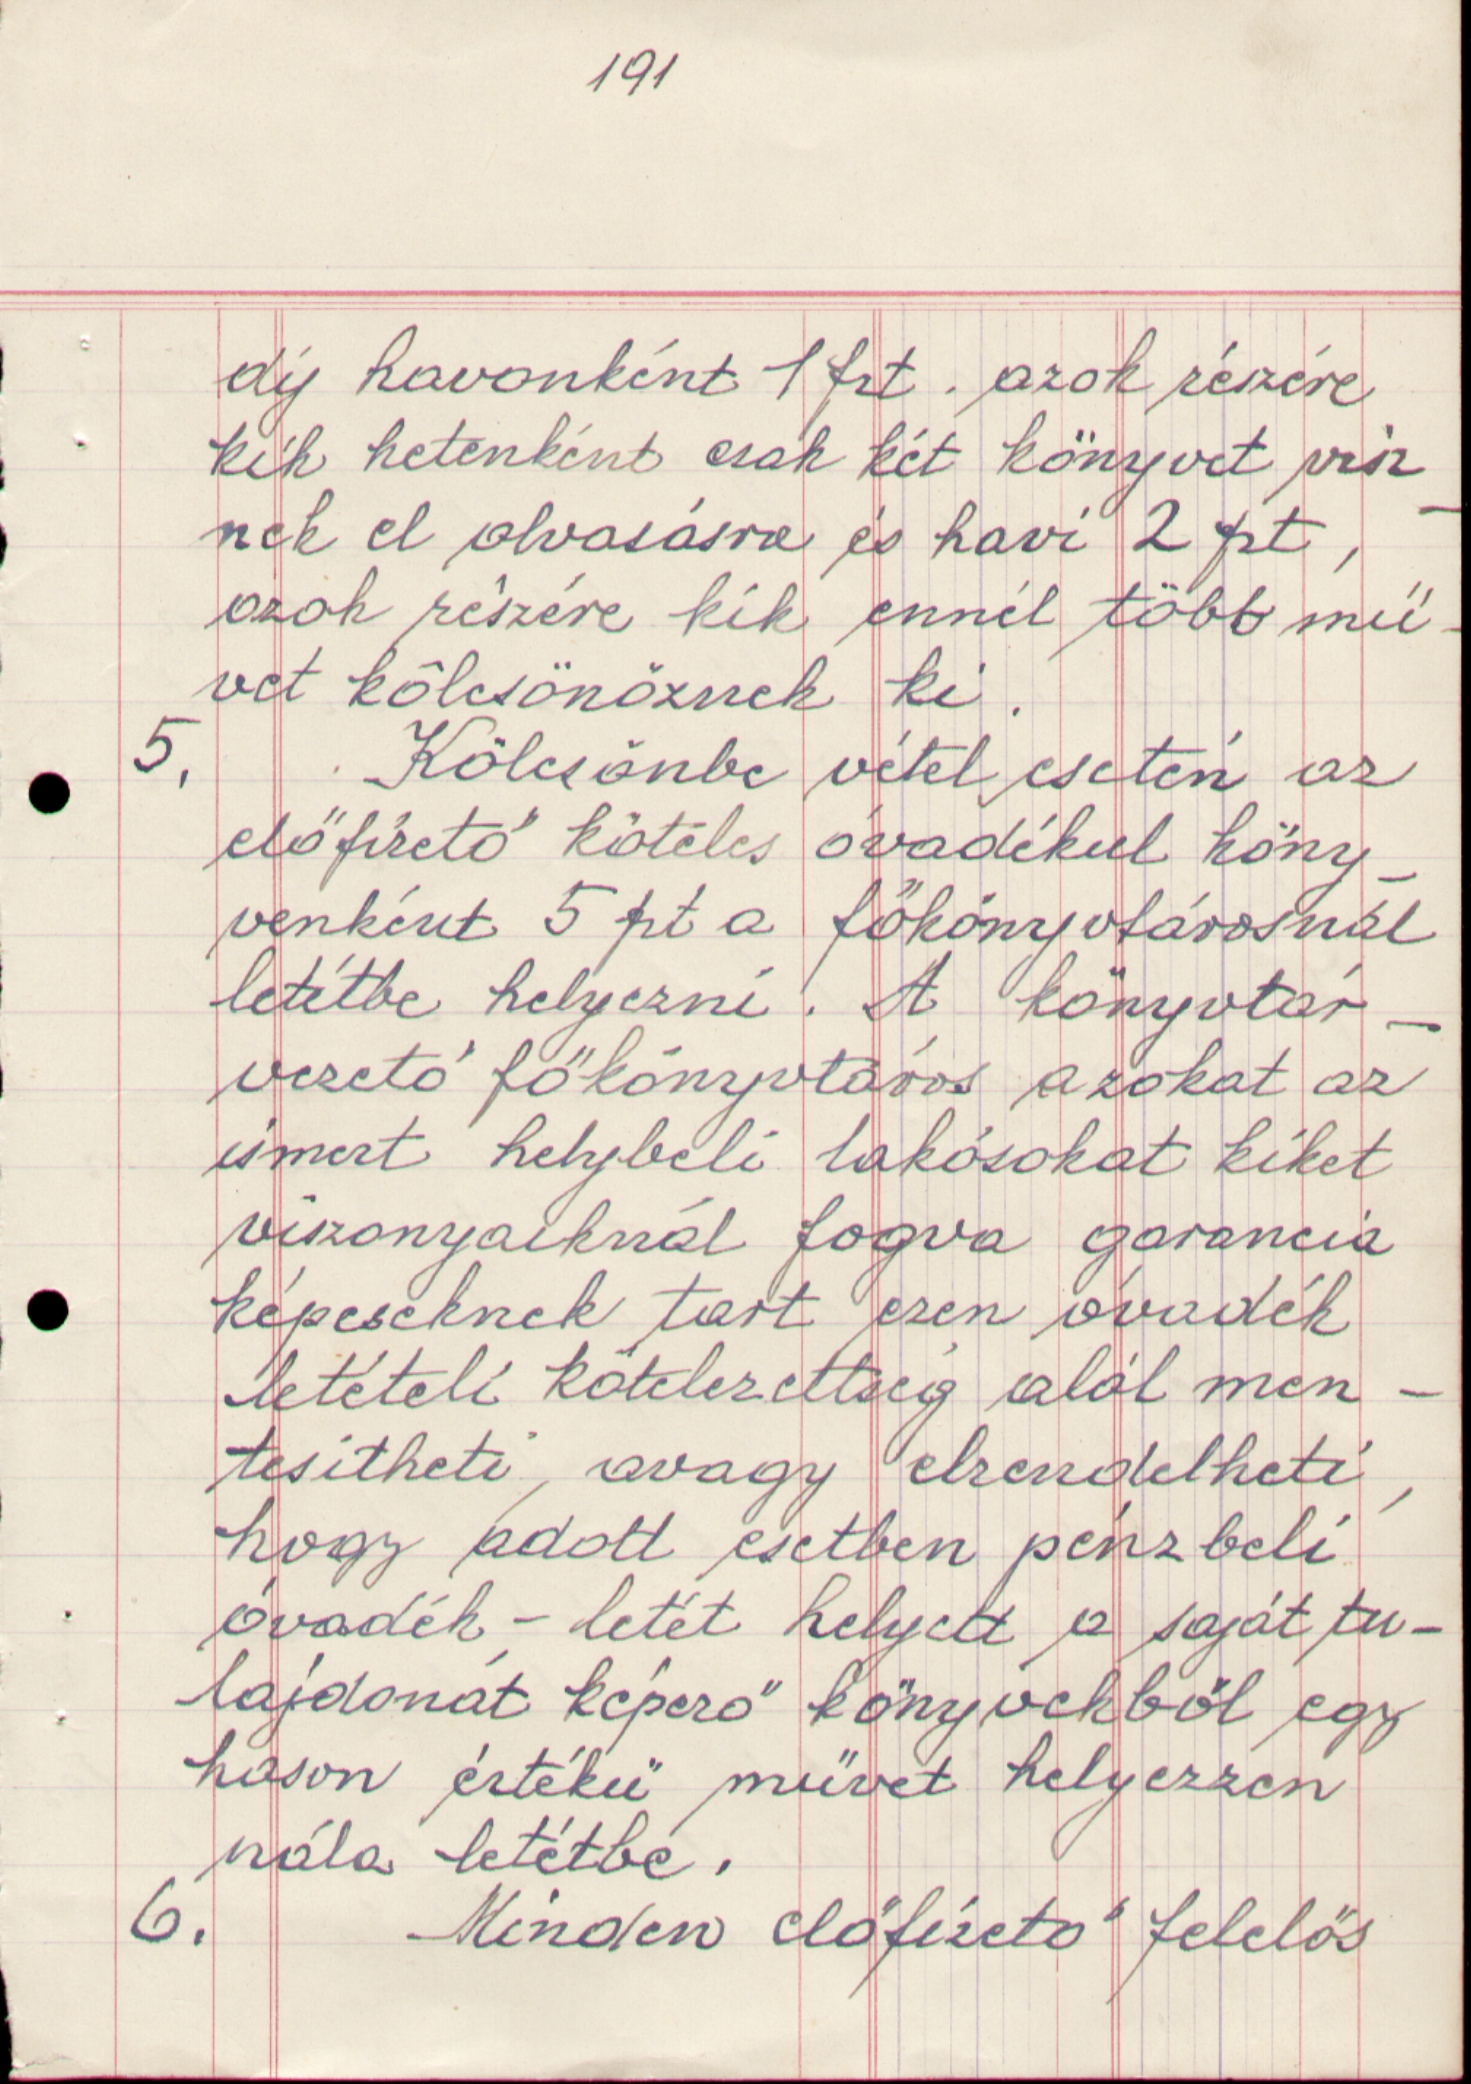 191
díj havonként 1 frt. azok részére
kik hetenként csak két könyvet visz-
nek el olvasásra és havi 2 frt,
azok részére kik ennél több mü-
vet kölcsönöznek ki.
5. Kölcsönbe vétel esetén az
előfizető köteles óvadékul köny-
venként 5 frt a főkönyvtárosnál
letétbe helyezni. A könyvtár-
vezető főkönyvtáros azokat az
ismert helybeli lakósokat kiket
viszonyaiknál fogva garancia
képeseknek tart ezen óvadék
letételi kötelezettség alól men-
tesitheti, avagy elrendelheti,
hogy adott esetben pénzbeli
óvadék-letét helyett a saját tu-
lajdonát képező könyvekből egy
hason értékü müvet helyezzen
nála letétbe.
6. Minden előfizető felelős